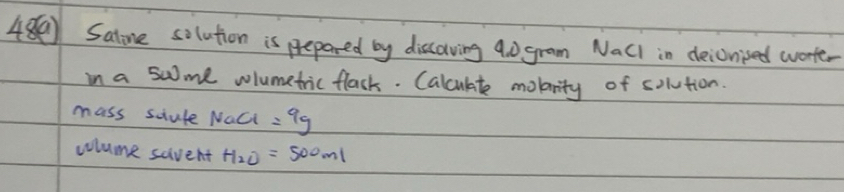 48(a) Saline solution is prepared by dissolving 9.0 gram NaCl in deionised water
in a 500ml volumetric flask. Calculate molarity of solution.
mass solute NaCl = 9g
volume solvent H₂O = 500ml